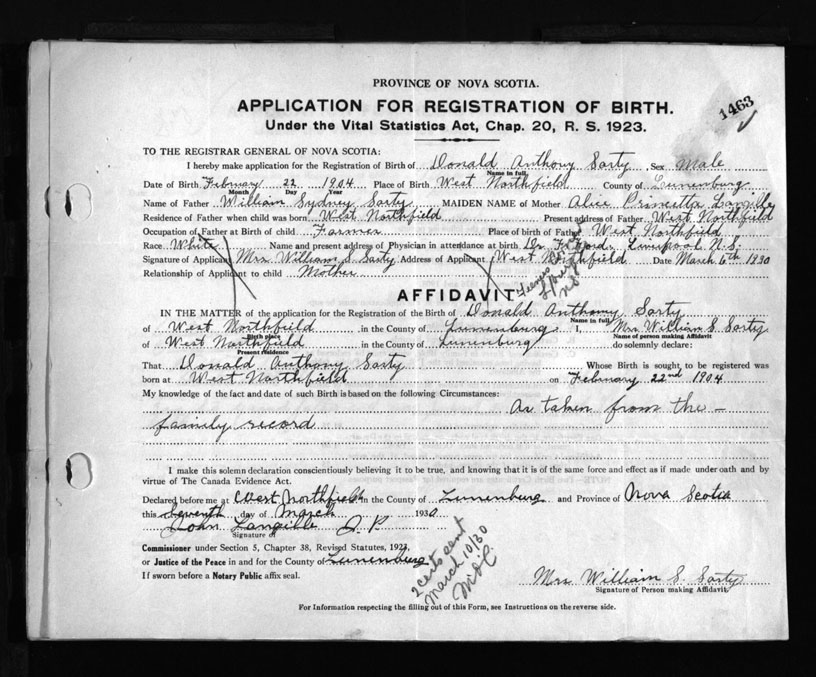 PROVINCE OF NOVA SCOTIA.
1463
APPLICATION FOR REGISTRATION OF BIRTH.
Under the Vital Statistics Act, Chap. 20, R. S. 1923.
TO THE REGISTRAR GENERAL OF NOVA SCOTIA:
I hereby make application for the Registration of Birth of Donald Anthony Sarty Sex Male
Name in full
Date of Birth February 22 1904 Place of Birth West Northfield County of Lunenburg
Month Day Year
Name of Father William Sydney Sarty MAIDEN NAME of Mother Alice Langille
Residence of Father when child was born West Northfield Present address of Father West Northfield
Occupation of Father at Birth of child Farmer Place of birth of Father West Northfield
Race White Name and present address of Physician in attendance at birth Dr. Liverpool N.S.
Signature of Applicant Mrs. William S. Sarty Address of Applicant West Northfield Date March 6th 1930
Relationship of Applicant to child Mother
N.S.
AFFIDAVIT
IN THE MATTER of the application for the Registration of the Birth of Donald Anthony Sarty
Name in full
of West Northfield in the County of Lunenburg I, Mrs William S. Sarty
Birth place
Name of person making Affidavit
of West Northfield in the County of Lunenburg do solemnly declare:
Present residence
That Donald Anthony Sarty Whose Birth is sought to be registered was
born at West Northfield on February 22nd 1904
My knowledge of the fact and date of such Birth is based on the following Circumstances:
As taken from the –
family record
I make this solemn declaration conscientiously believing it to be true, and knowing that it is of the same force and effect as if made under oath and by
virtue of The Canada Evidence Act.
Declared before me at West Northfield in the County of Lunenburg and Province of Nova Scotia
this Seventh day of March 1930
John Langille J. P.
Signature of
Commissioner under Section 5, Chapter 38, Revised Statutes, 1923,
or Justice of the Peace in and for the County of Lunenburg
If sworn before a Notary Public affix seal.
2 certs sent
March 10/30
Mrs William S. Sarty
Signature of Person making Affidavit.
For Information respecting the filling out of this Form, see Instructions on the reverse side.